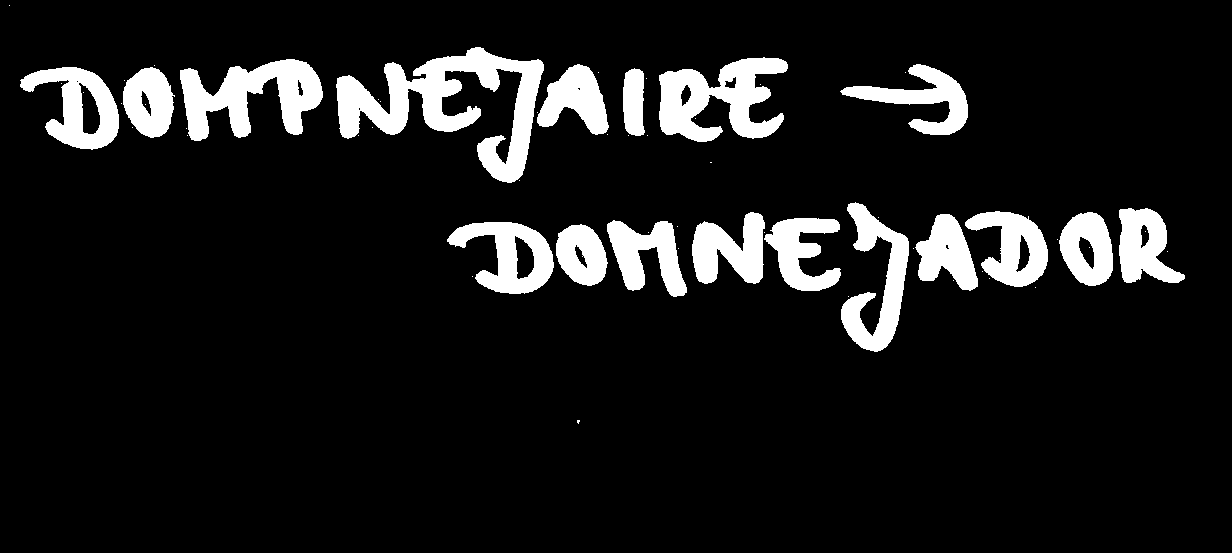 DOMPNEJAIRE →
DOMNEJADOR